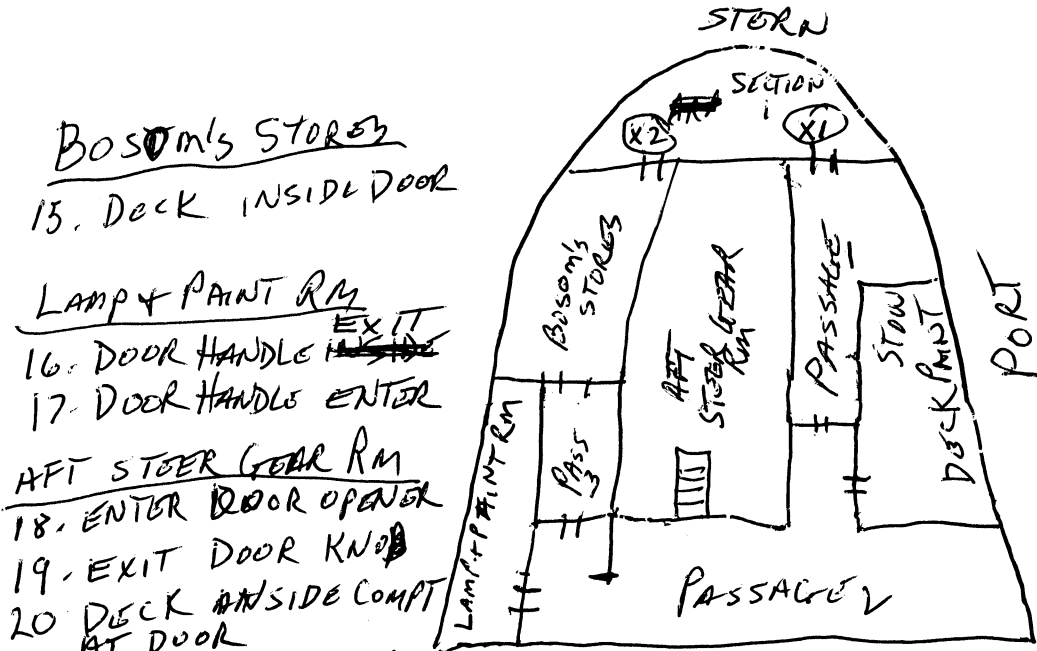 BOSOM'S STORES
15. DECK INSIDE DOOR
LAMP + PAINT RM
EXIT
16. DOOR HANDLE INSIDE
17. DOOR HANDLE ENTER
AFT STEER GEAR RM
18. ENTER DOOR OPENER
19. EXIT DOOR KNOB
20 DECK INSIDE COMPT
AT DOOR
STERN
SECTION
1
X2
X1
BOSOM'S
STORES
AFT
STEER GEAR
RM
PASSAGE
1
STOW
DECK PAINT
PORT
LAMP + PAINT RM
PASS
3
PASSAGE 2